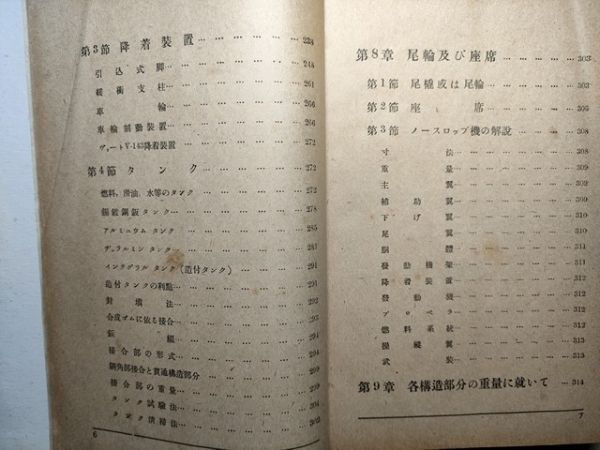 第3節 降着装置 … … … … … … 238
引込式脚 … … … … … … 248
緩衝支柱 … … … … … … 261
車輪 … … … … … … 266
車輪制動装置 … … … … … 266
ヴォートV-143降着装置 … … … … 272
第4節 タンク … … … … … … 272
燃料,滑油,水等のタンク … … … … 272
錫鍍鋼鈑タンク … … … … … 278
アルミニウム タンク … … … … 285
ヂュラルミン タンク … … … … 287
インテグラル タンク (造付タンク) … … … 291
造付タンクの利點 … … … … … 291
填法 … … … … … … 292
合成ゴムに依る接合 … … … … 294
鈑 … … … … … … 294
接合部の形式 … … … … … 294
隅角部接合と貫通構造部分 … … … 299
接合部の重量 … … … … … 299
タンク試驗法 … … … … … 304
タンク清掃法 … … … … … 302
6
第8章 尾輪及び座席 … … … … 303
第1節 尾橇或は尾輪 … … … … 303
第2節 座席 … … … … … 305
第3節 ノースロップ機の解說 … … … 308
寸法 … … … … … 308
重量 … … … … … 309
主翼 … … … … … 309
補助翼 … … … … … 310
下げ翼 … … … … … 310
尾翼 … … … … … 310
胴體 … … … … … 311
發動機架 … … … … … 311
降着裝置 … … … … … 311
發動機 … … … … … 312
プロペラ … … … … … 312
燃料系統 … … … … … 312
操縱翼 … … … … … 313
武裝 … … … … … 313
第9章 各構造部分の重量に就いて … 314
7